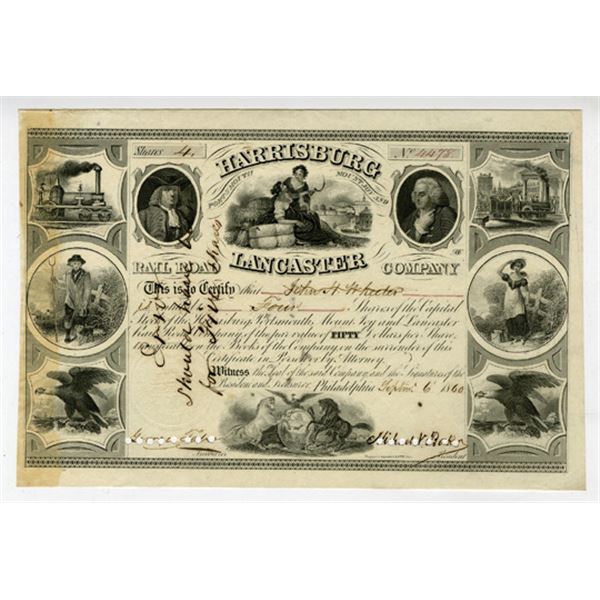 Shares 4. No. 4478
HARRISBURG
PORTSMOUTH MOUNT JOY AND
LANCASTER
RAIL ROAD COMPANY
This is to Certify that John H Wheeler
is entitled to Four Shares of the Capital
Stock of the Harrisburg, Portsmouth, Mount Joy and Lancaster
Rail Road Company of the par value of FIFTY Dollars per share
transferable on the Books of the Company, on the surrender of this
Certificate in Person or by Attorney.
Witness the Seal of the said Company and the Signatures of the
President and Treasurer, Philadelphia Septem. 6 1860
Treasurer President